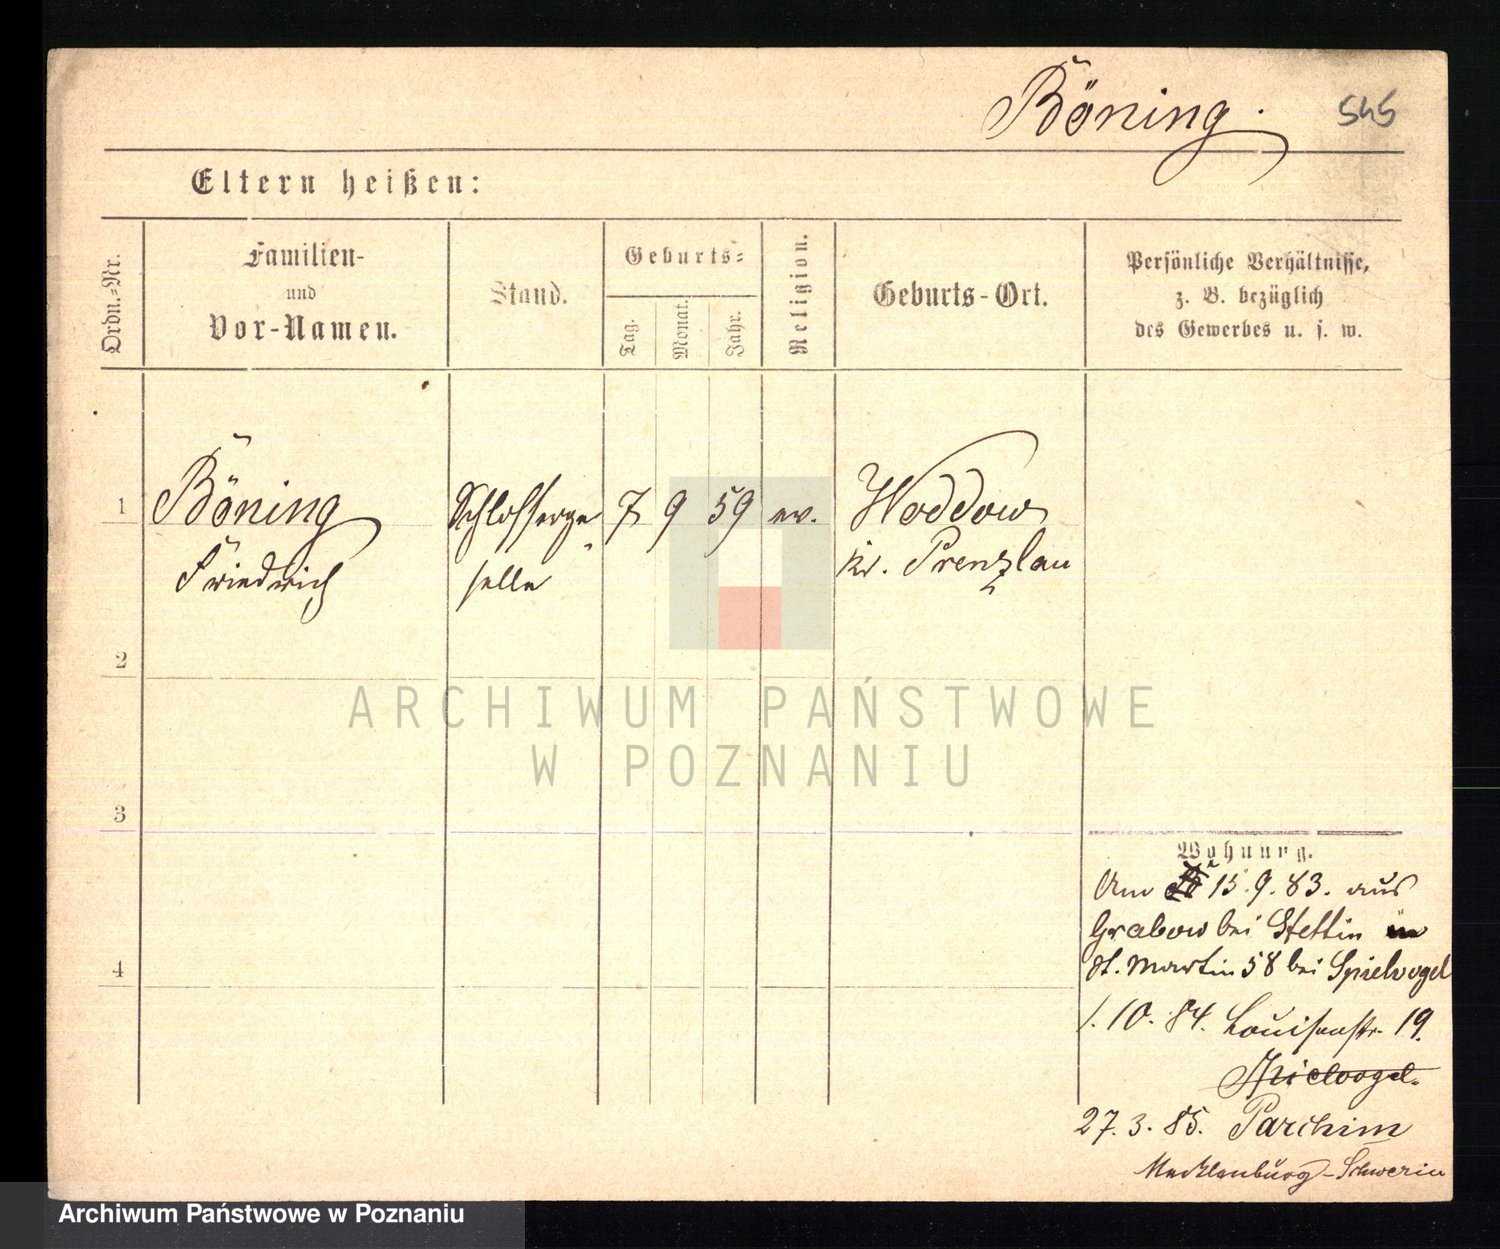 Böning.
545
Eltern heißen:
Ordn.-Nr.
Familien-
und
Vor-Namen.
Stand.
Geburts-
Tag.
Monat.
Jahr.
Religion.
Geburts-Ort.
Persönliche Verhältnisse,
z. B. bezüglich
des Gewerbes u. s. w.
1
Böning
Friedrich
Schlosserge-
selle
7
9
59
ev.
Woddow
Kr. Prenzlau
2
3
4
Wohnung.
Am 15.9.83. aus
Grabow bei Stettin
St. Martin 58 bei Spielvogel
1.10.84. Louisenstr. 19.
Spielvogel.
27.3.85. Parchim
Mecklenburg-Schwerin
ARCHIWUM PAŃSTWOWE
W POZNANIU
Archiwum Państwowe w Poznaniu